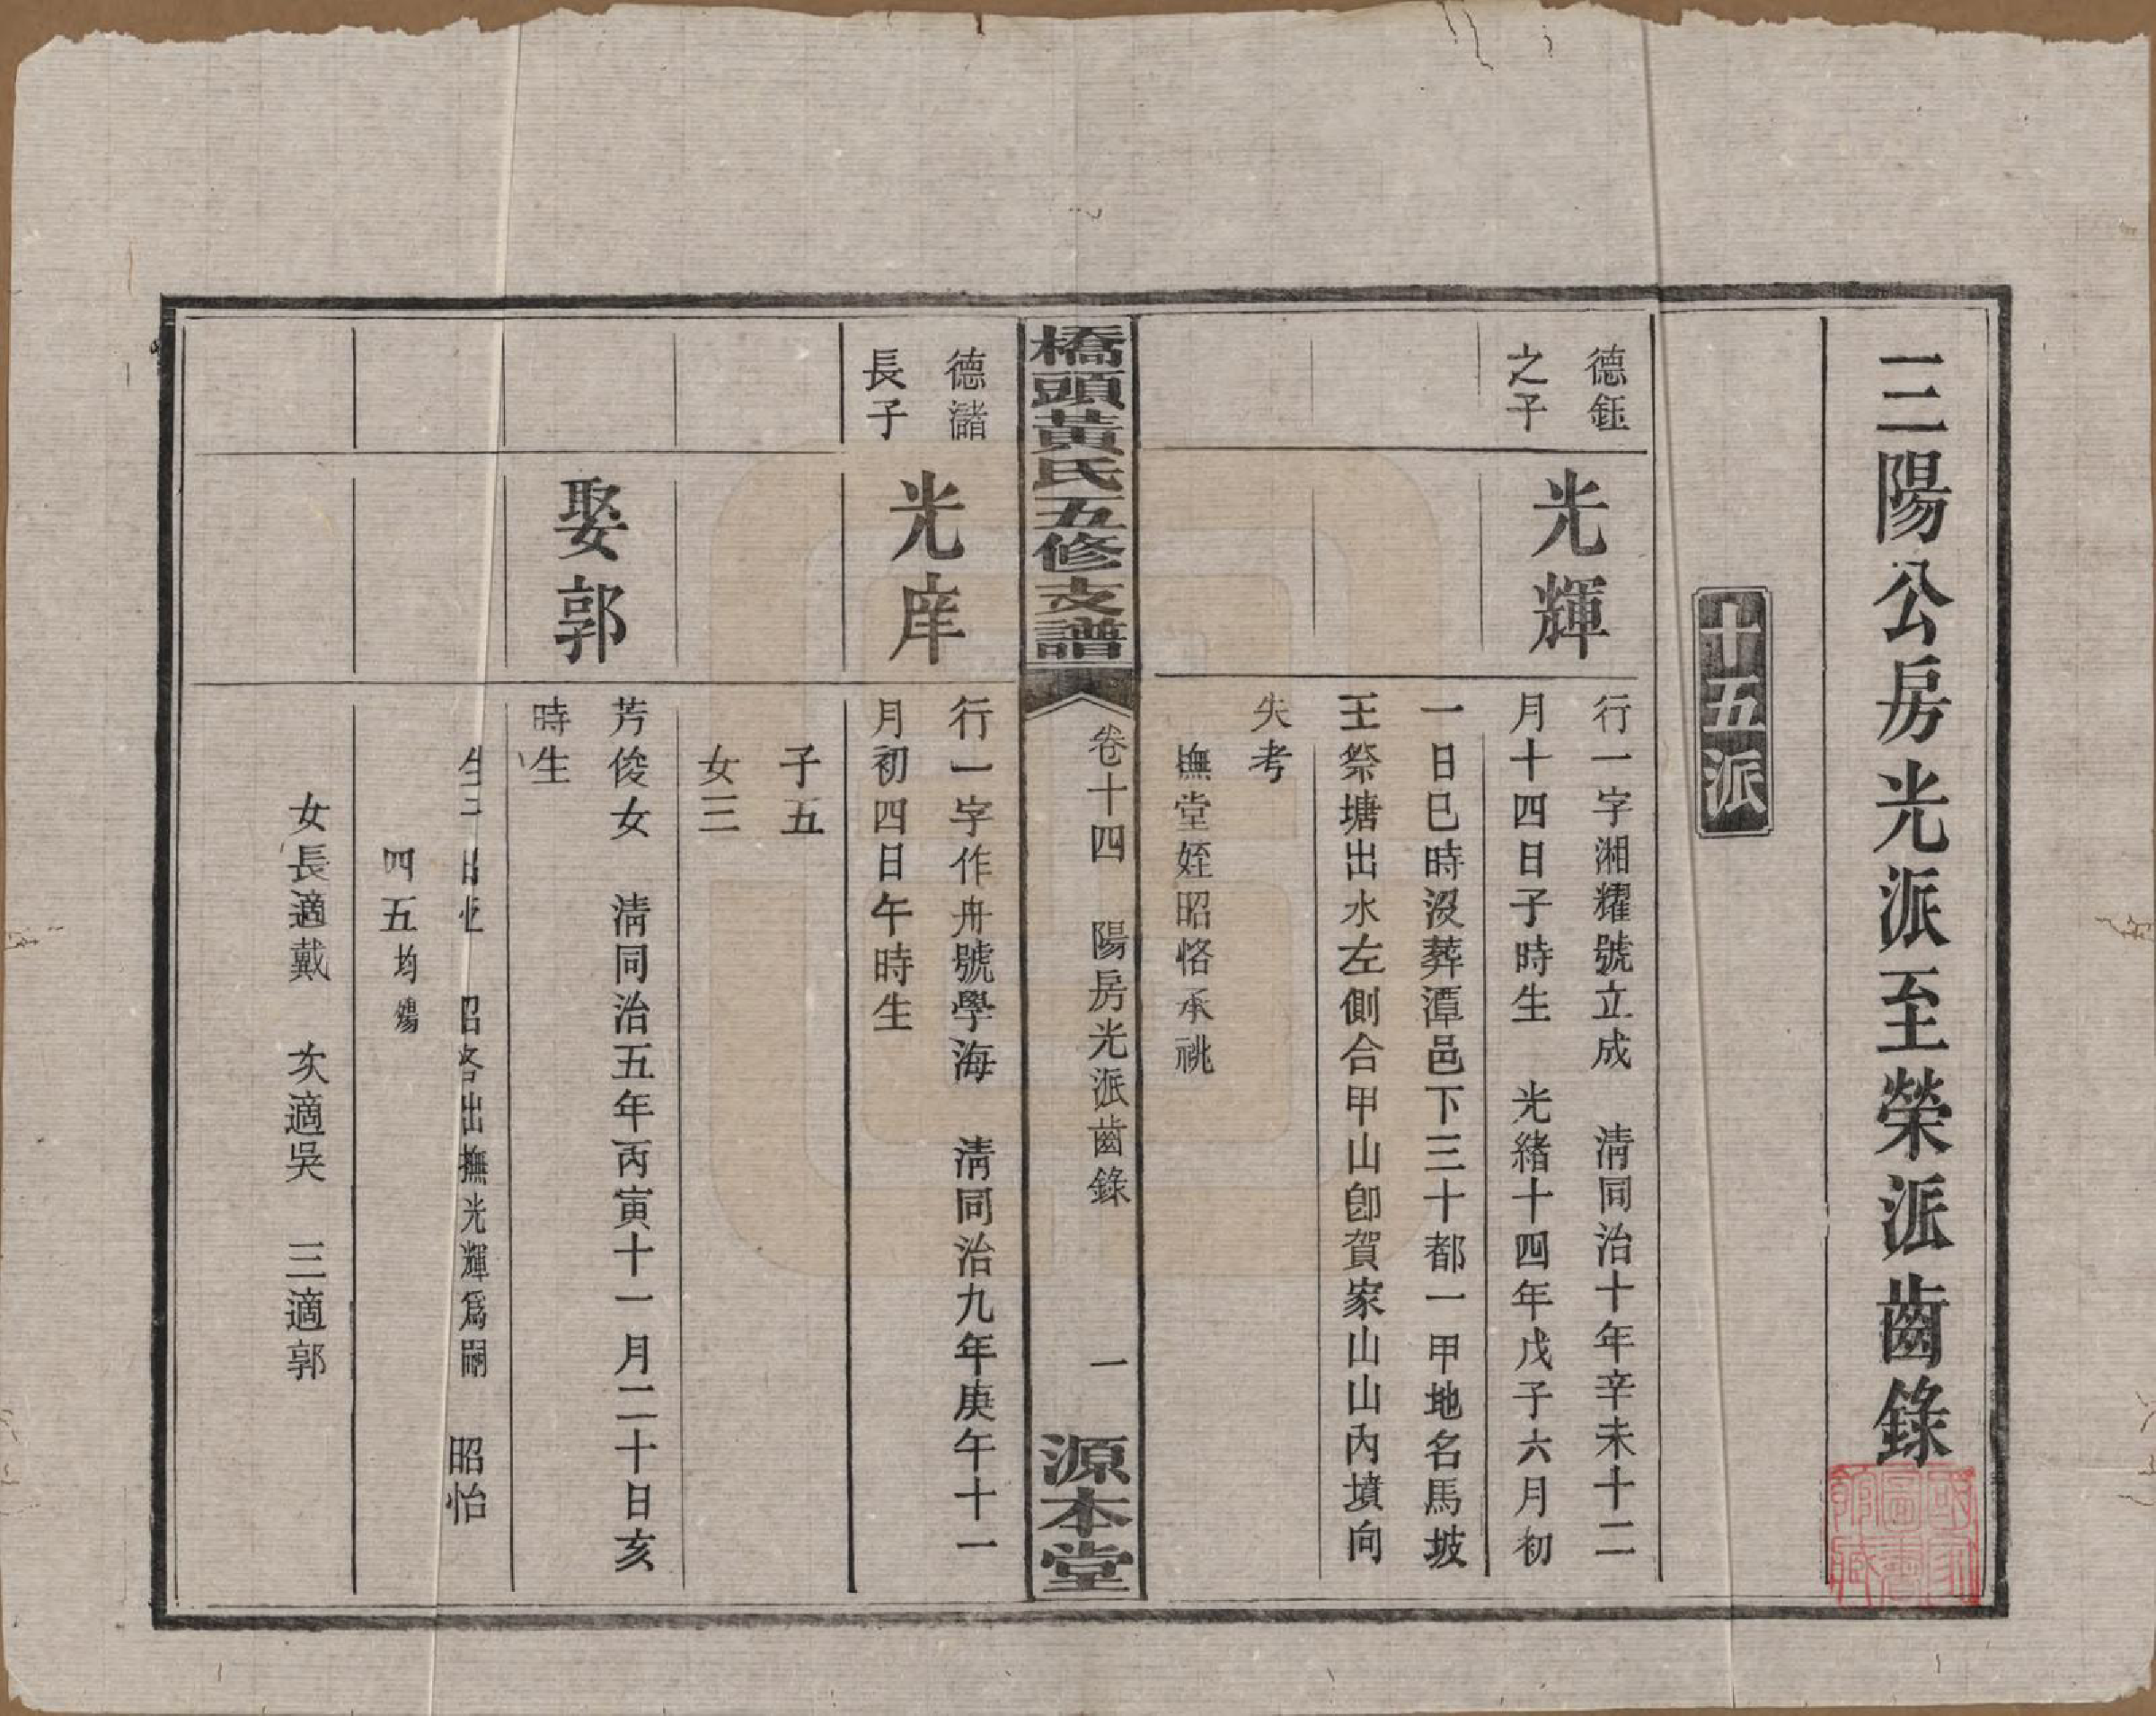 三陽公房光派至榮派齒錄
十五派
德鈺
之子
光輝
行一字湘耀號立成　清同治十年辛未十二
月十四日子時生　光緒十四年戊子六月初
一日巳時沒葬潭邑下三十都一甲地名馬坡
王祭塘出水左側合甲山卽賀家山山內墳向
失考
撫堂姪昭恪承祧
橋頭黃氏五修支譜
卷十四　陽房光派齒錄　一
源本堂
德瀦
長子
光庠
行一字作舟號學海　清同治九年庚午十一
月初四日午時生
子五
女三
娶郭
芳俊女　清同治五年丙寅十一月二十日亥
時生
生子　昭　昭恪出撫光輝爲嗣　昭怡
四五均殤
女長適戴　次適吳　三適郭
國家圖書館藏